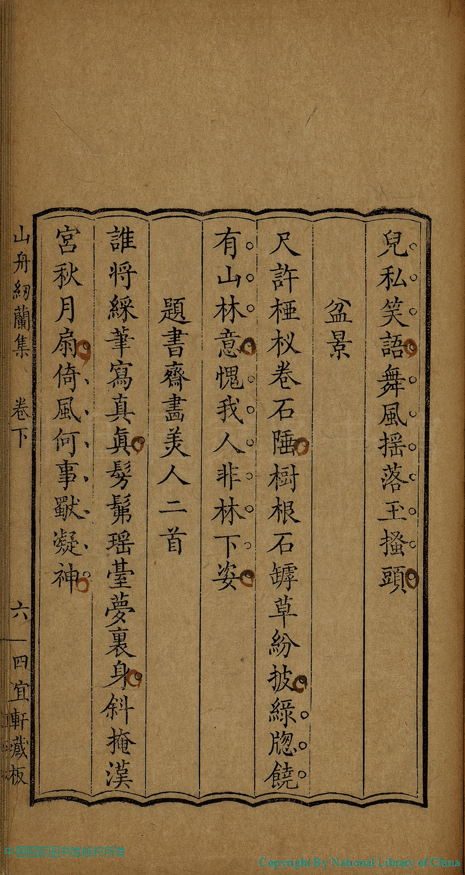 兒私笑語舞風揺落玉搔頭
盆景
尺許椏杈卷石陲樹根石罅草紛披綠牕饒
有山林意愧我人非林下姿
題書齋畵美人二首
誰將綵筆寫真真髣髴瑶臺夢裏身斜掩漢
宮秋月扇倚風何事獸凝神
山舟紉蘭集 卷下 六 四宜軒藏板
Copyright By National Library of China